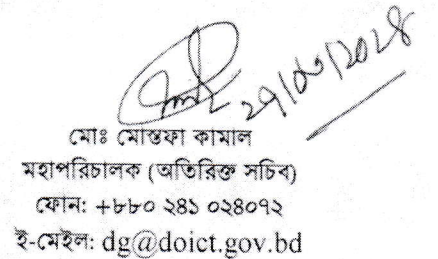 ২৭/০৩/২০২৪
মোঃ মোস্তফা কামাল
মহাপরিচালক (অতিরিক্ত সচিব)
ফোন: +৮৮০ ২৪১ ০২৪০৭২
ই-মেইল: dg@doict.gov.bd